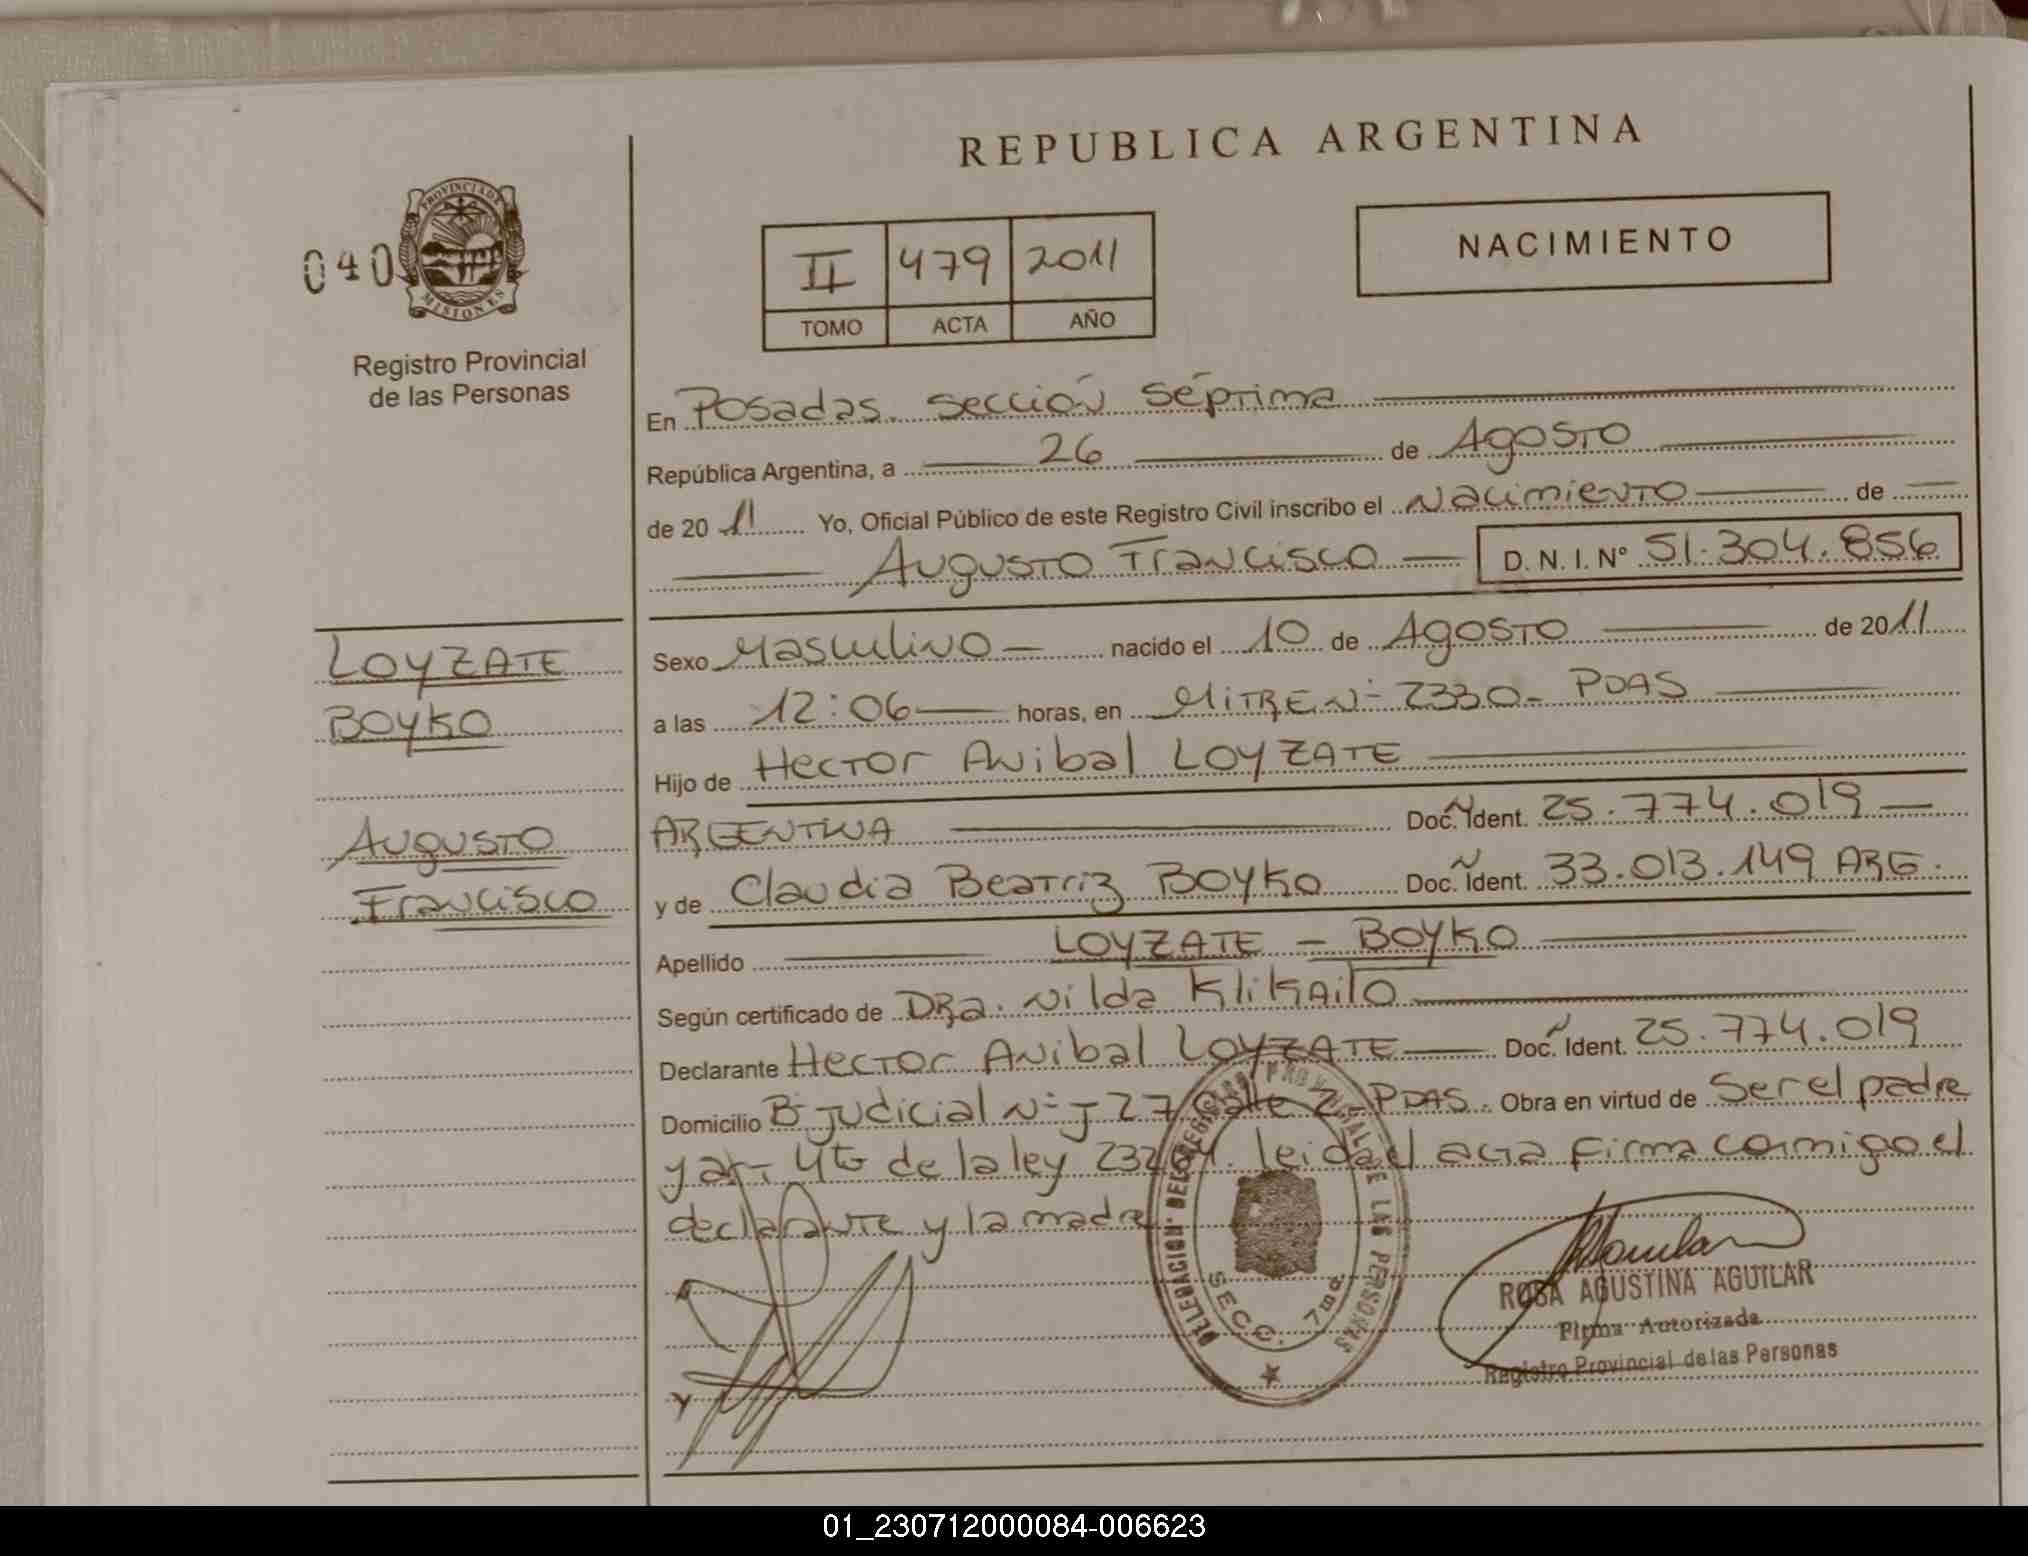 REPUBLICA ARGENTINA
NACIMIENTO
040
PROVINCIA DE
MISIONES
Registro Provincial
de las Personas
II 479 2011
TOMO ACTA AÑO
En Posadas. Sección Séptima
República Argentina, a 26 de Agosto
de 20 11 Yo, Oficial Público de este Registro Civil inscribo el Nacimiento de
Augusto Francisco D. N. I. N° 51.304.856
LOYZATE
BOYKO
Augusto
Francisco
Sexo Masculino nacido el 10 de Agosto de 2011
a las 12:06 horas, en MITRE Nº 2330- PDAS
Hijo de Hector Anibal LOYZATE
ARGENTINA Doc. Ident. 25.774.019
y de Claudia Beatriz BOYKO Doc. Ident. 33.013.149 ARG.
Apellido LOYZATE - BOYKO
Según certificado de DRa. Nilda
Declarante Hector Anibal LOYZATE Doc. Ident. 25.774.019
Domicilio Bº Judicial Nº J 27 Calle 2 PDAS. Obra en virtud de Ser el padre
y art 4to de la ley leida el acta firma conmigo el
declarante y la madre
DELEGACION DEL REGISTRO PROVINCIAL DE LAS PERSONAS
SECC. 7ma
ROSA AGUSTINA AGUILAR
Firma Autorizada
Registro Provincial de las Personas
01_230712000084-006623